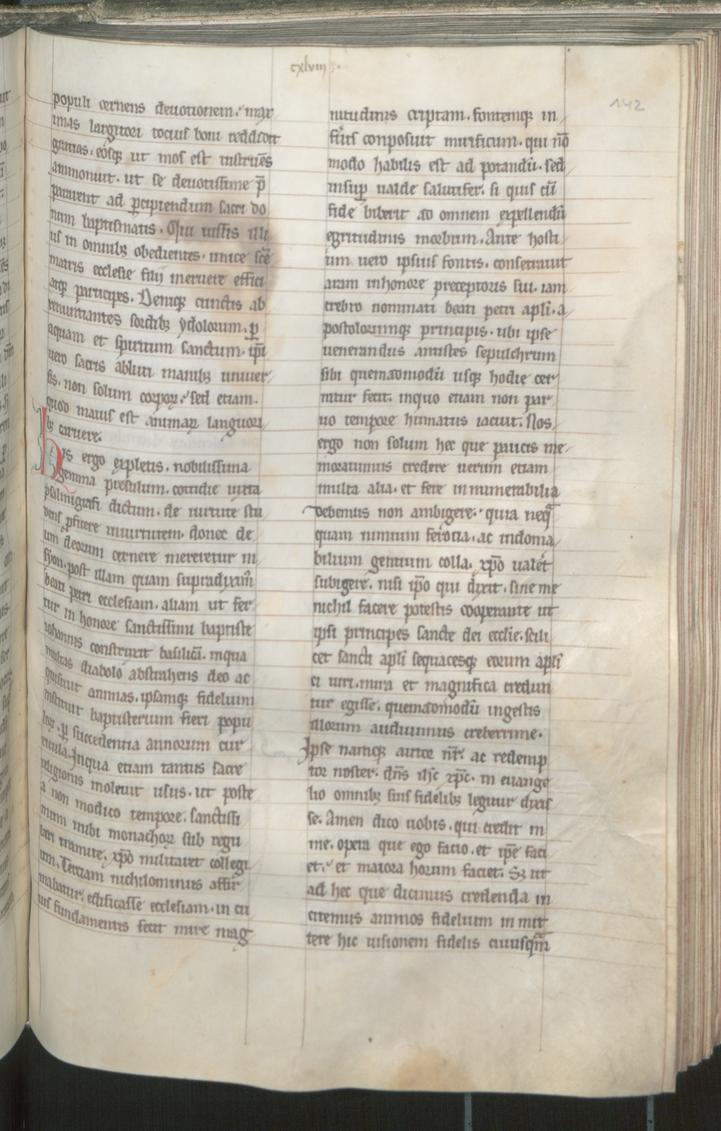 cxlviii
142
populi cernens deuotionem. max
imas largitori tocius boni reddidit
gratias. eosq; ut mos est instruēs
ammonuit. ut se deuotissime p̄
pararent ad p̱cipiendum sacri do
num baptismatis. Qui iussis illi
us in omnibꝫ obedientes. unice scē
matris ecclesie filij meruere effici
atq; participes. Deniq; cunctis ab
renuntiantes sordibꝫ ydolorum. p̱
aquam et spiritum sanctum. ip̄i
uero sacris abluti manibꝫ uniuer
sis. non solum corpoꝝ. sed etiam.
quod maius est animaꝝ languori
bꝫ caruere.
His ergo expletis. nobilissima
gemma presulum. cotidie iuxta
psalmigrafi dictum. de uirtute stu
dens p̱ficere in uirtutem. donec de
um deorum cernere mereretur in
syon. post illam quam supradixim̄
beati petri ecclesiam. aliam ut fer
tur in honore sanctissimi baptiste
iohannis construxit basilicā. inqua
multas diabolo abstrahens deo ac
quisiuit animas. ipsamq; fidelium
instituit baptisterium fieri popu
loꝝ. p̱ succedentia annorum cur
ricula. Inqua etiam tantus sacre
religionis moleuit usus. ut poste
a non modico tempore. sanctissi
mum inibi monachoꝝ sub regu
lari tramite. xp̄o militaret collegi
um. Terciam nichilominus affir
mabatur edificasse ecclesiam. in cu
ius fundamentis fecit mire mag
nitudinis criptam. fontemq; in
fr̄is conposuit mirificum. qui nō
modo habilis est ad potandū. sed
insup̱ ualde salutifer. si quis cū
fide biberit ad omnem expellendū
egritudinis morbum. Ante hosti
um uero ipsius fontis. consecrauit
aram inhonore preceptoris sui. iam
crebro nominati beati petri apl̄i. a
postolorumq; principis. ubi ipse
uenerandus antistes sepulchrum
sibi quemadmodū usq; hodie cer
nitur fecit. inquo etiam non par
uo tempore humatus iacuit. Nos
ergo non solum hec que paucis me
morauimus credere uerum etiam
multa alia. et fere innumerabilia
debemus non ambigere. quia neq;
quam nimium ferocia. ac indoma
bilium gentium colla. xp̄o ualēt
subigere. nisi ip̄o qui dixit. sine me
nichil facere potestis cooperante ut
ipsi principes sancte dei eccl̄ie. scili
cet sancti apl̄i sequacesq; eorum apl̄i
ci uiri. mira et magnifica credun
tur egisse. quemadmodū ingestis
illorum audiuimus creberrime.
Ipse namq; auctor nr̄. ac redemp
tor noster. dn̄s ih̄c xp̄c. in euange
lio omnibꝫ suis fidelibꝫ legitur dixis
se. Amen dico uobis. qui credit in
me. opera que ego facio. et ip̄e faci
et. et maiora horum faciet. Sꝫ ut
ad hec que dicimus credenda in
citemus animos fidelium in mit
tere hic uisionem fidelis cuiusq̄m